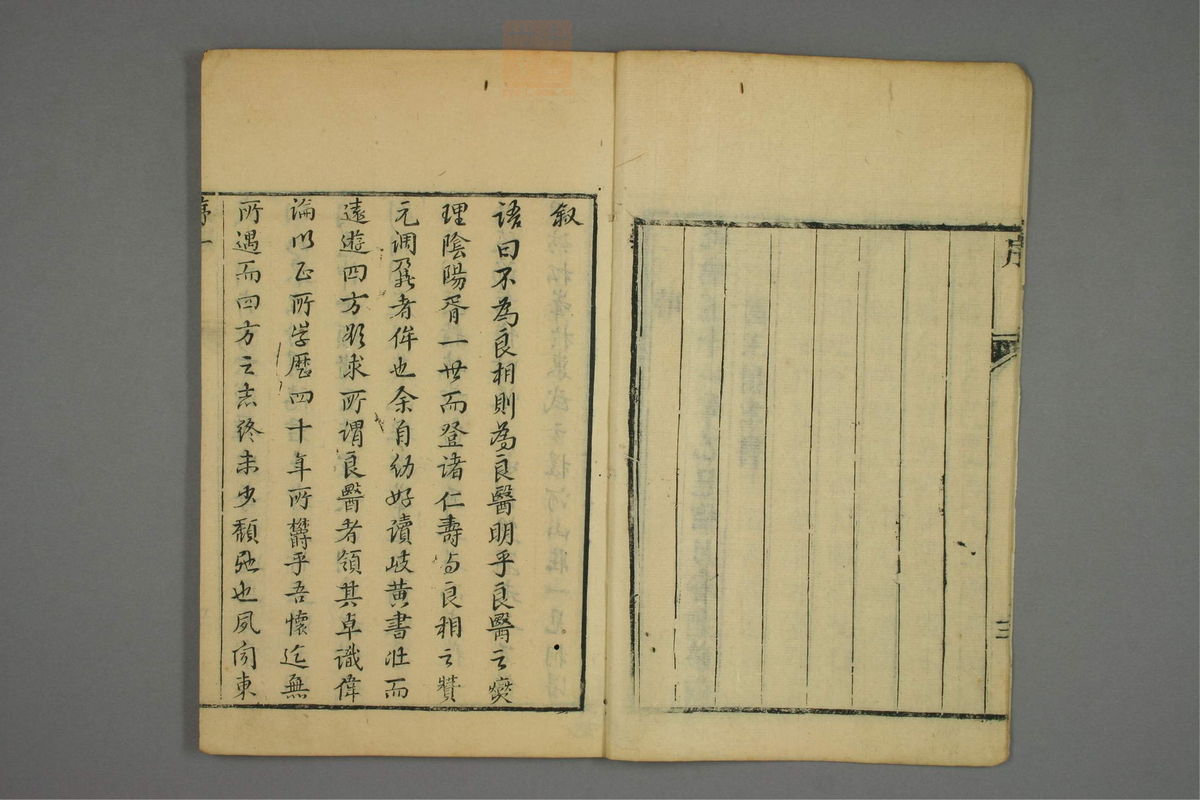 序
三
叙
語曰不為良相則為良醫明乎良醫之燮
理陰陽胥一世而登諸仁壽与良相之贊
元调鼐者侔也余自幼好讀岐黄書壮而
遠遊四方欲求所谓良醫者領其卓識偉
論以正所学歷四十年所欝乎吾懷迄無
所遇而四方之志終未少頽弛也夙闻東
序一